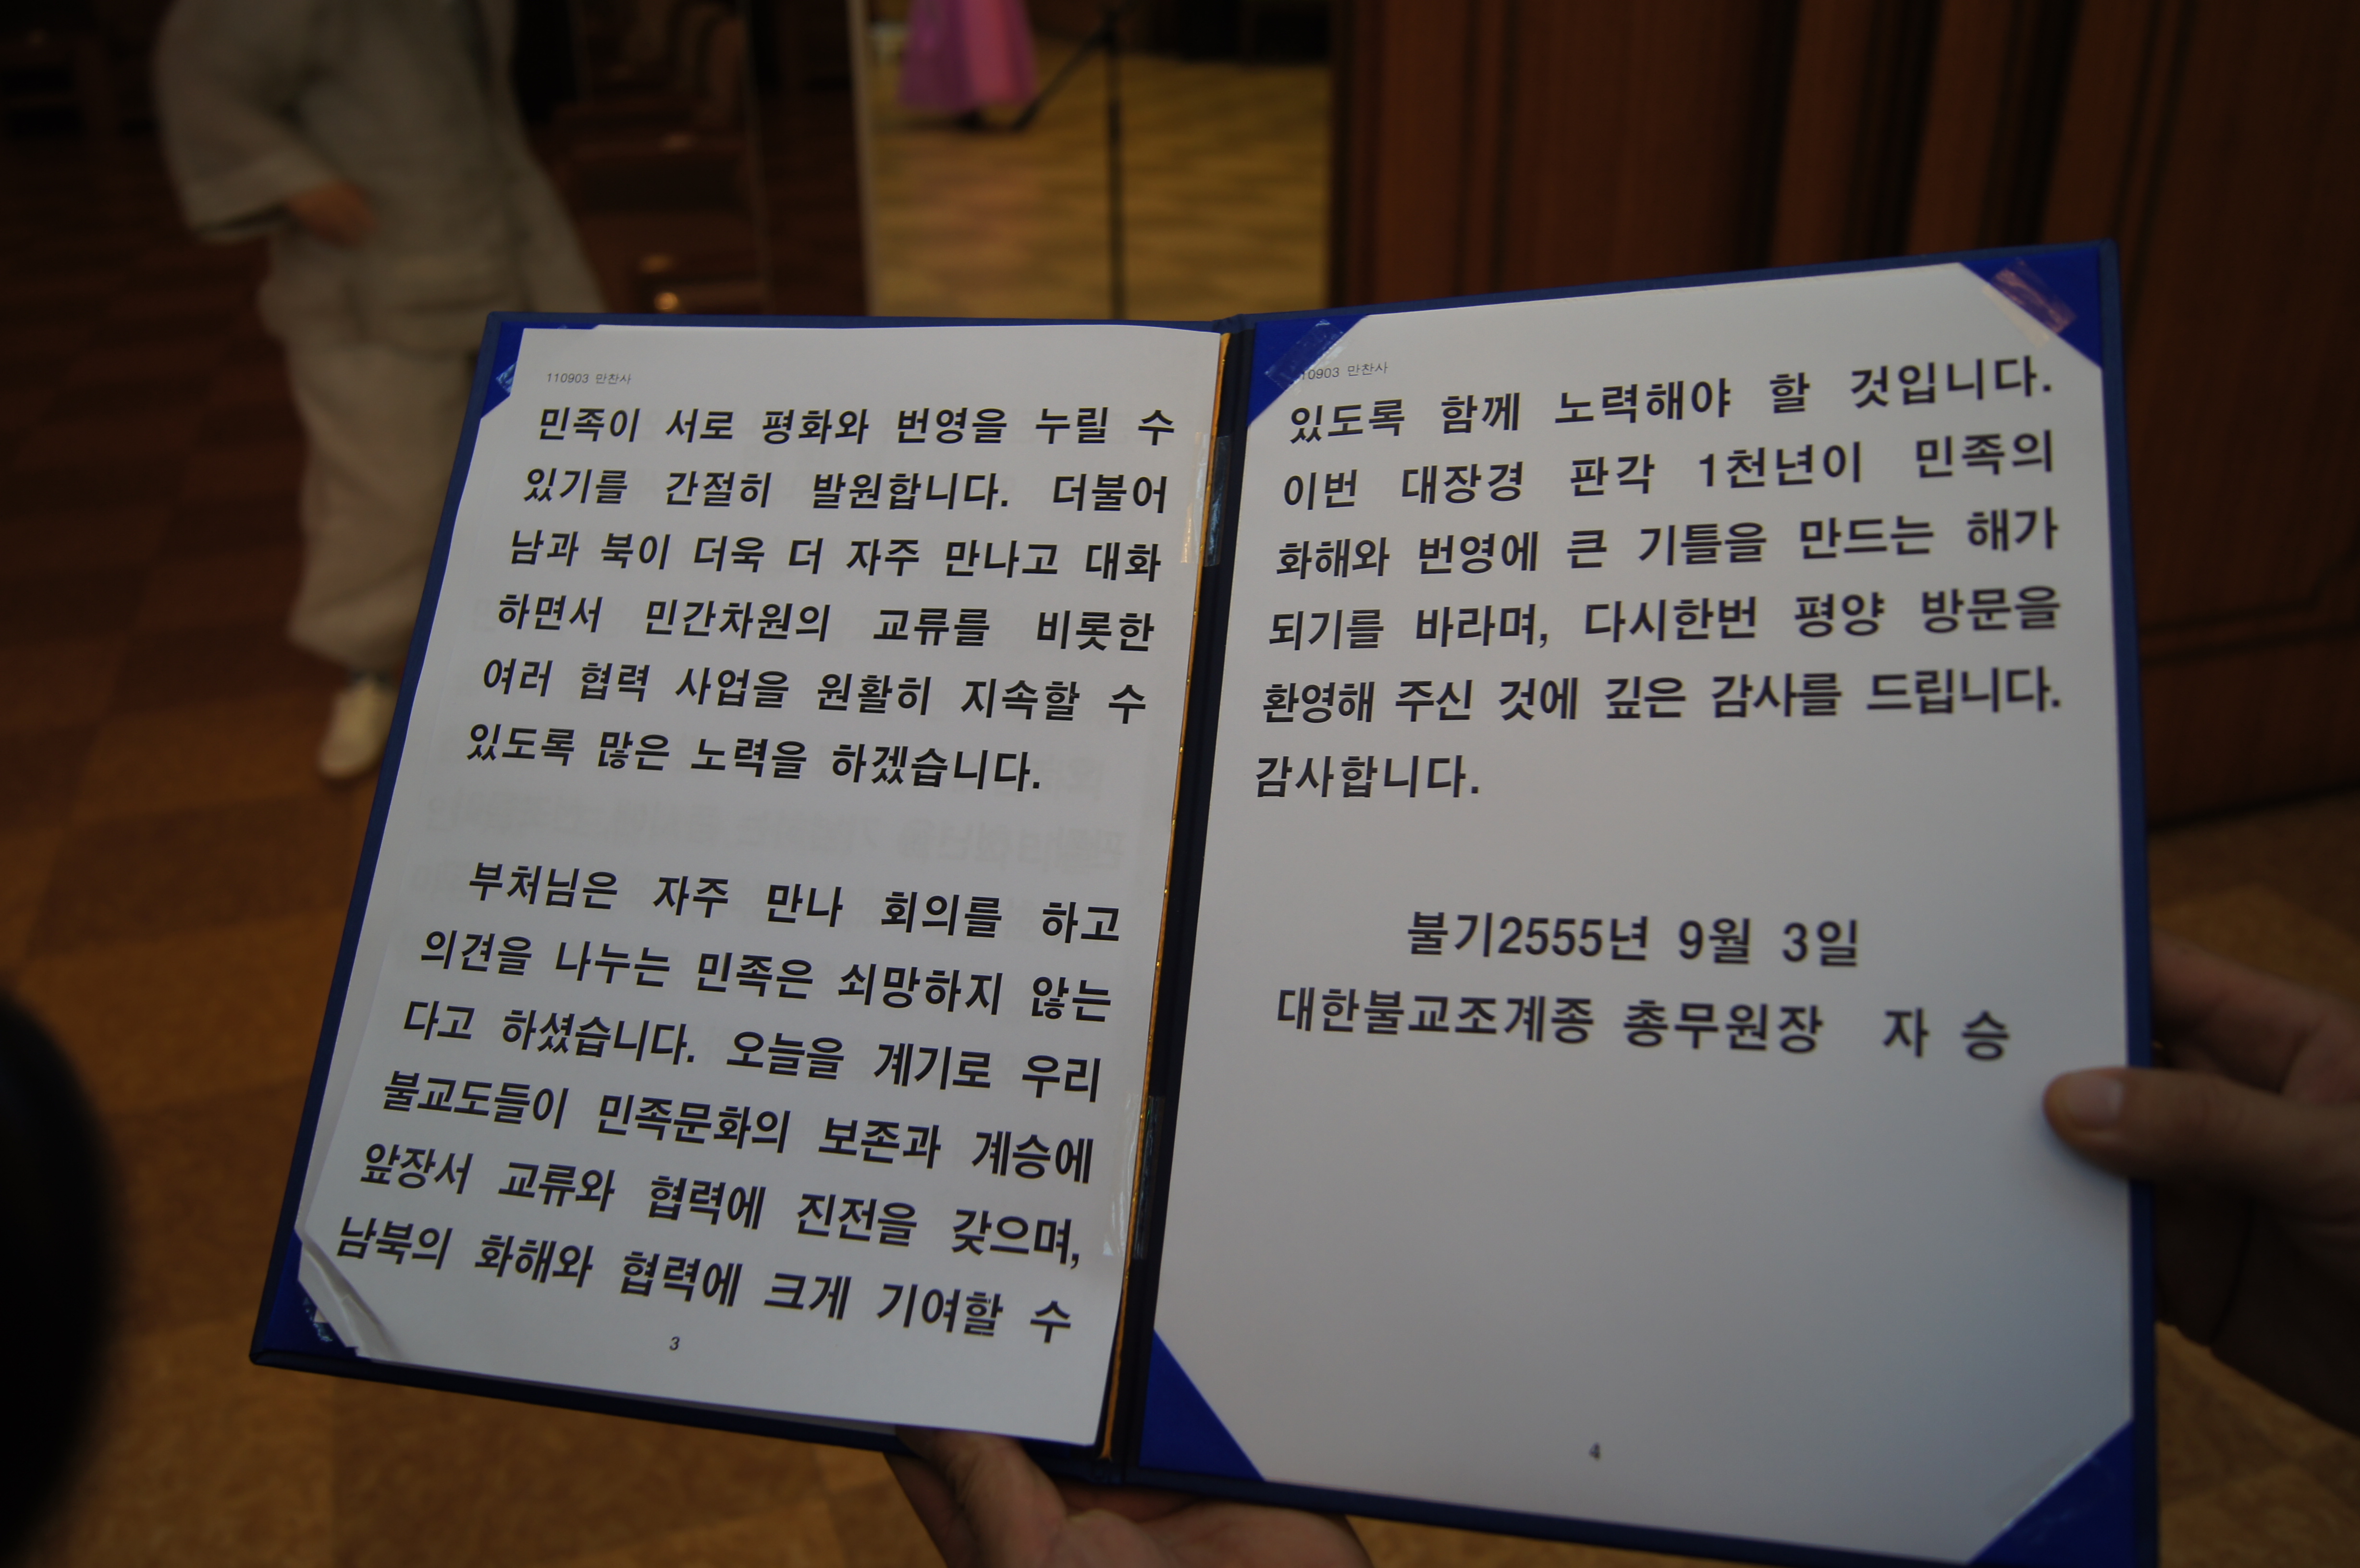 110903 만찬사
민족이 서로 평화와 번영을 누릴 수
있기를 간절히 발원합니다. 더불어
남과 북이 더욱 더 자주 만나고 대화
하면서 민간차원의 교류를 비롯한
여러 협력 사업을 원활히 지속할 수
있도록 많은 노력을 하겠습니다.
부처님은 자주 만나 회의를 하고
의견을 나누는 민족은 쇠망하지 않는
다고 하셨습니다. 오늘을 계기로 우리
불교도들이 민족문화의 보존과 계승에
앞장서 교류와 협력에 진전을 갖으며,
남북의 화해와 협력에 크게 기여할 수
3
10903 만찬사
있도록 함께 노력해야 할 것입니다.
이번 대장경 판각 1천년이 민족의
화해와 번영에 큰 기틀을 만드는 해가
되기를 바라며, 다시한번 평양 방문을
환영해 주신 것에 깊은 감사를 드립니다.
감사합니다.
불기2555년 9월 3일
대한불교조계종 총무원장 자 승
4